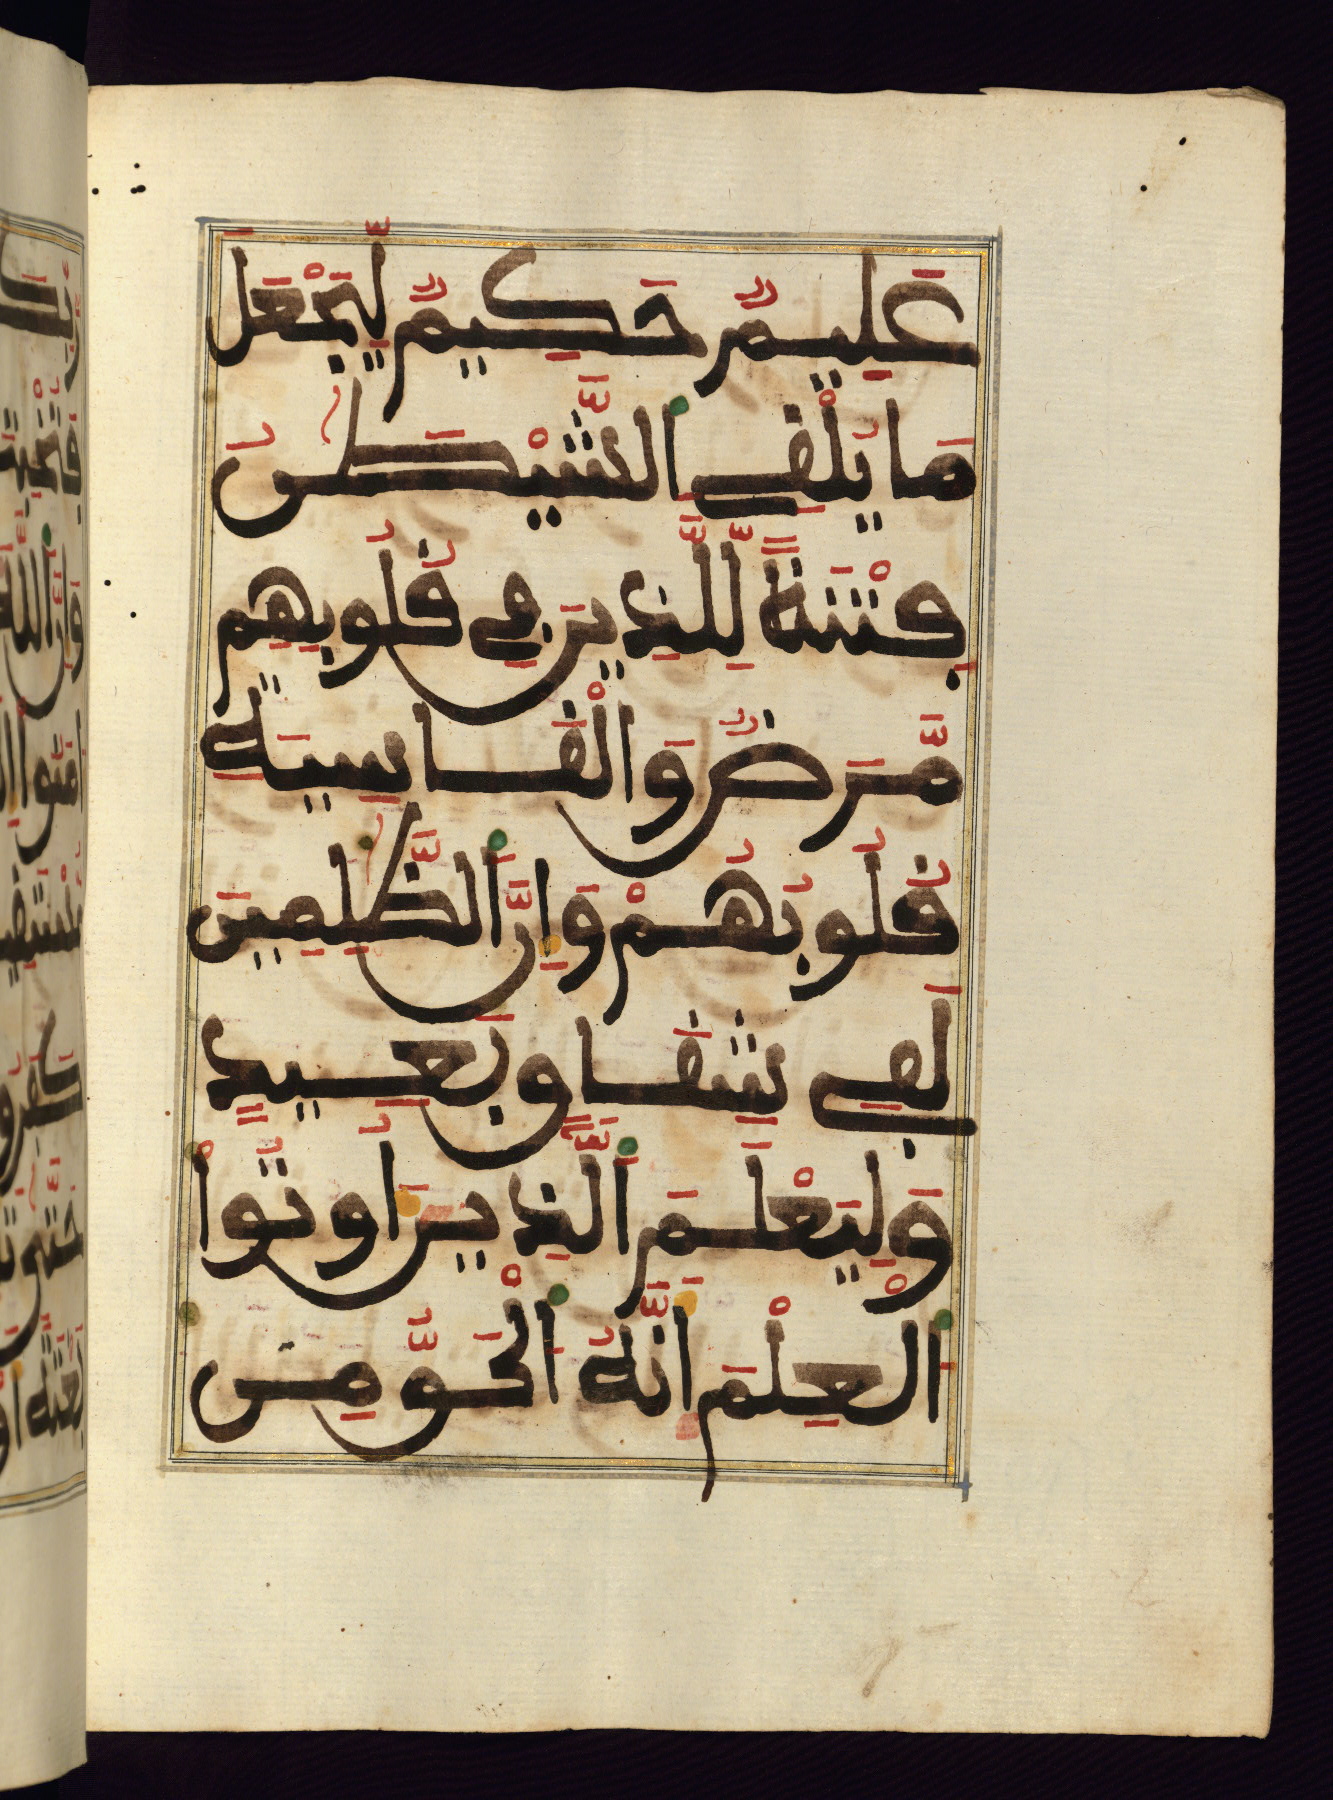 عَلِيمٌ حَكِيمٌ لِّيَجْعَلَ
مَا يُلْقِي الشَّيْطَٰنُ
فِتْنَةً لِّلَّذِينَ فِي قُلُوبِهِم
مَّرَضٌ وَالْقَاسِيَةِ
قُلُوبُهُمْ وَإِنَّ الظَّٰلِمِينَ
لَفِي شِقَاقٍ بَعِيدٍ
وَلِيَعْلَمَ الَّذِينَ أُوتُوا
الْعِلْمَ أَنَّهُ الْحَقُّ مِن